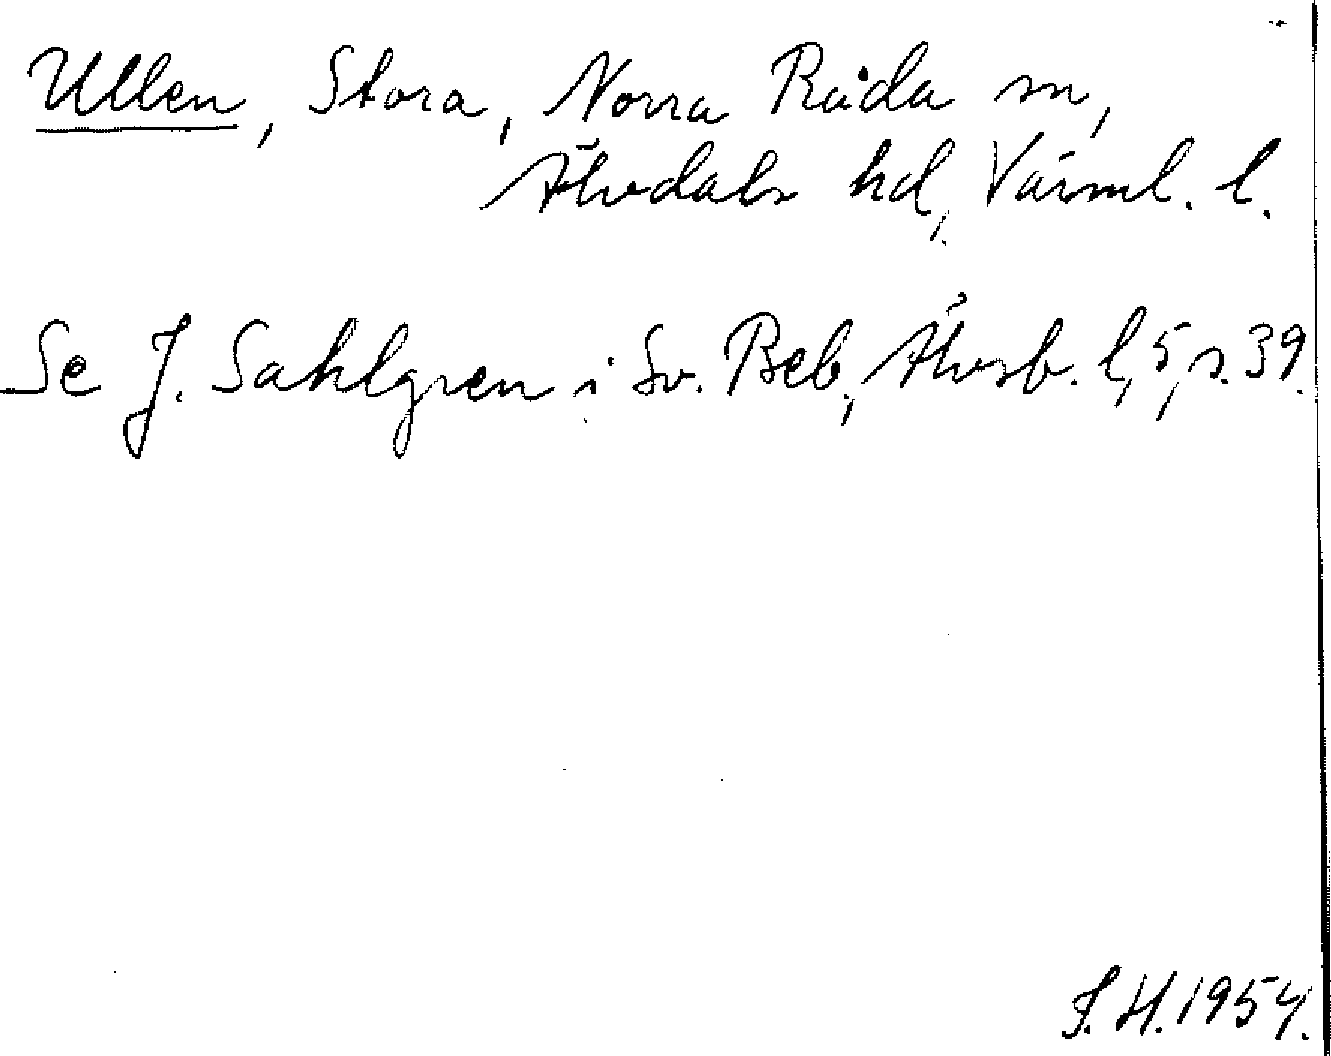 Ullen, Stora, Norra Råda sn,
Älvdals hd, Värml. l.
Se J. Sahlgren i Sv. Beb., Älvsb. l, 5, s. 39.
S. H. 1954.